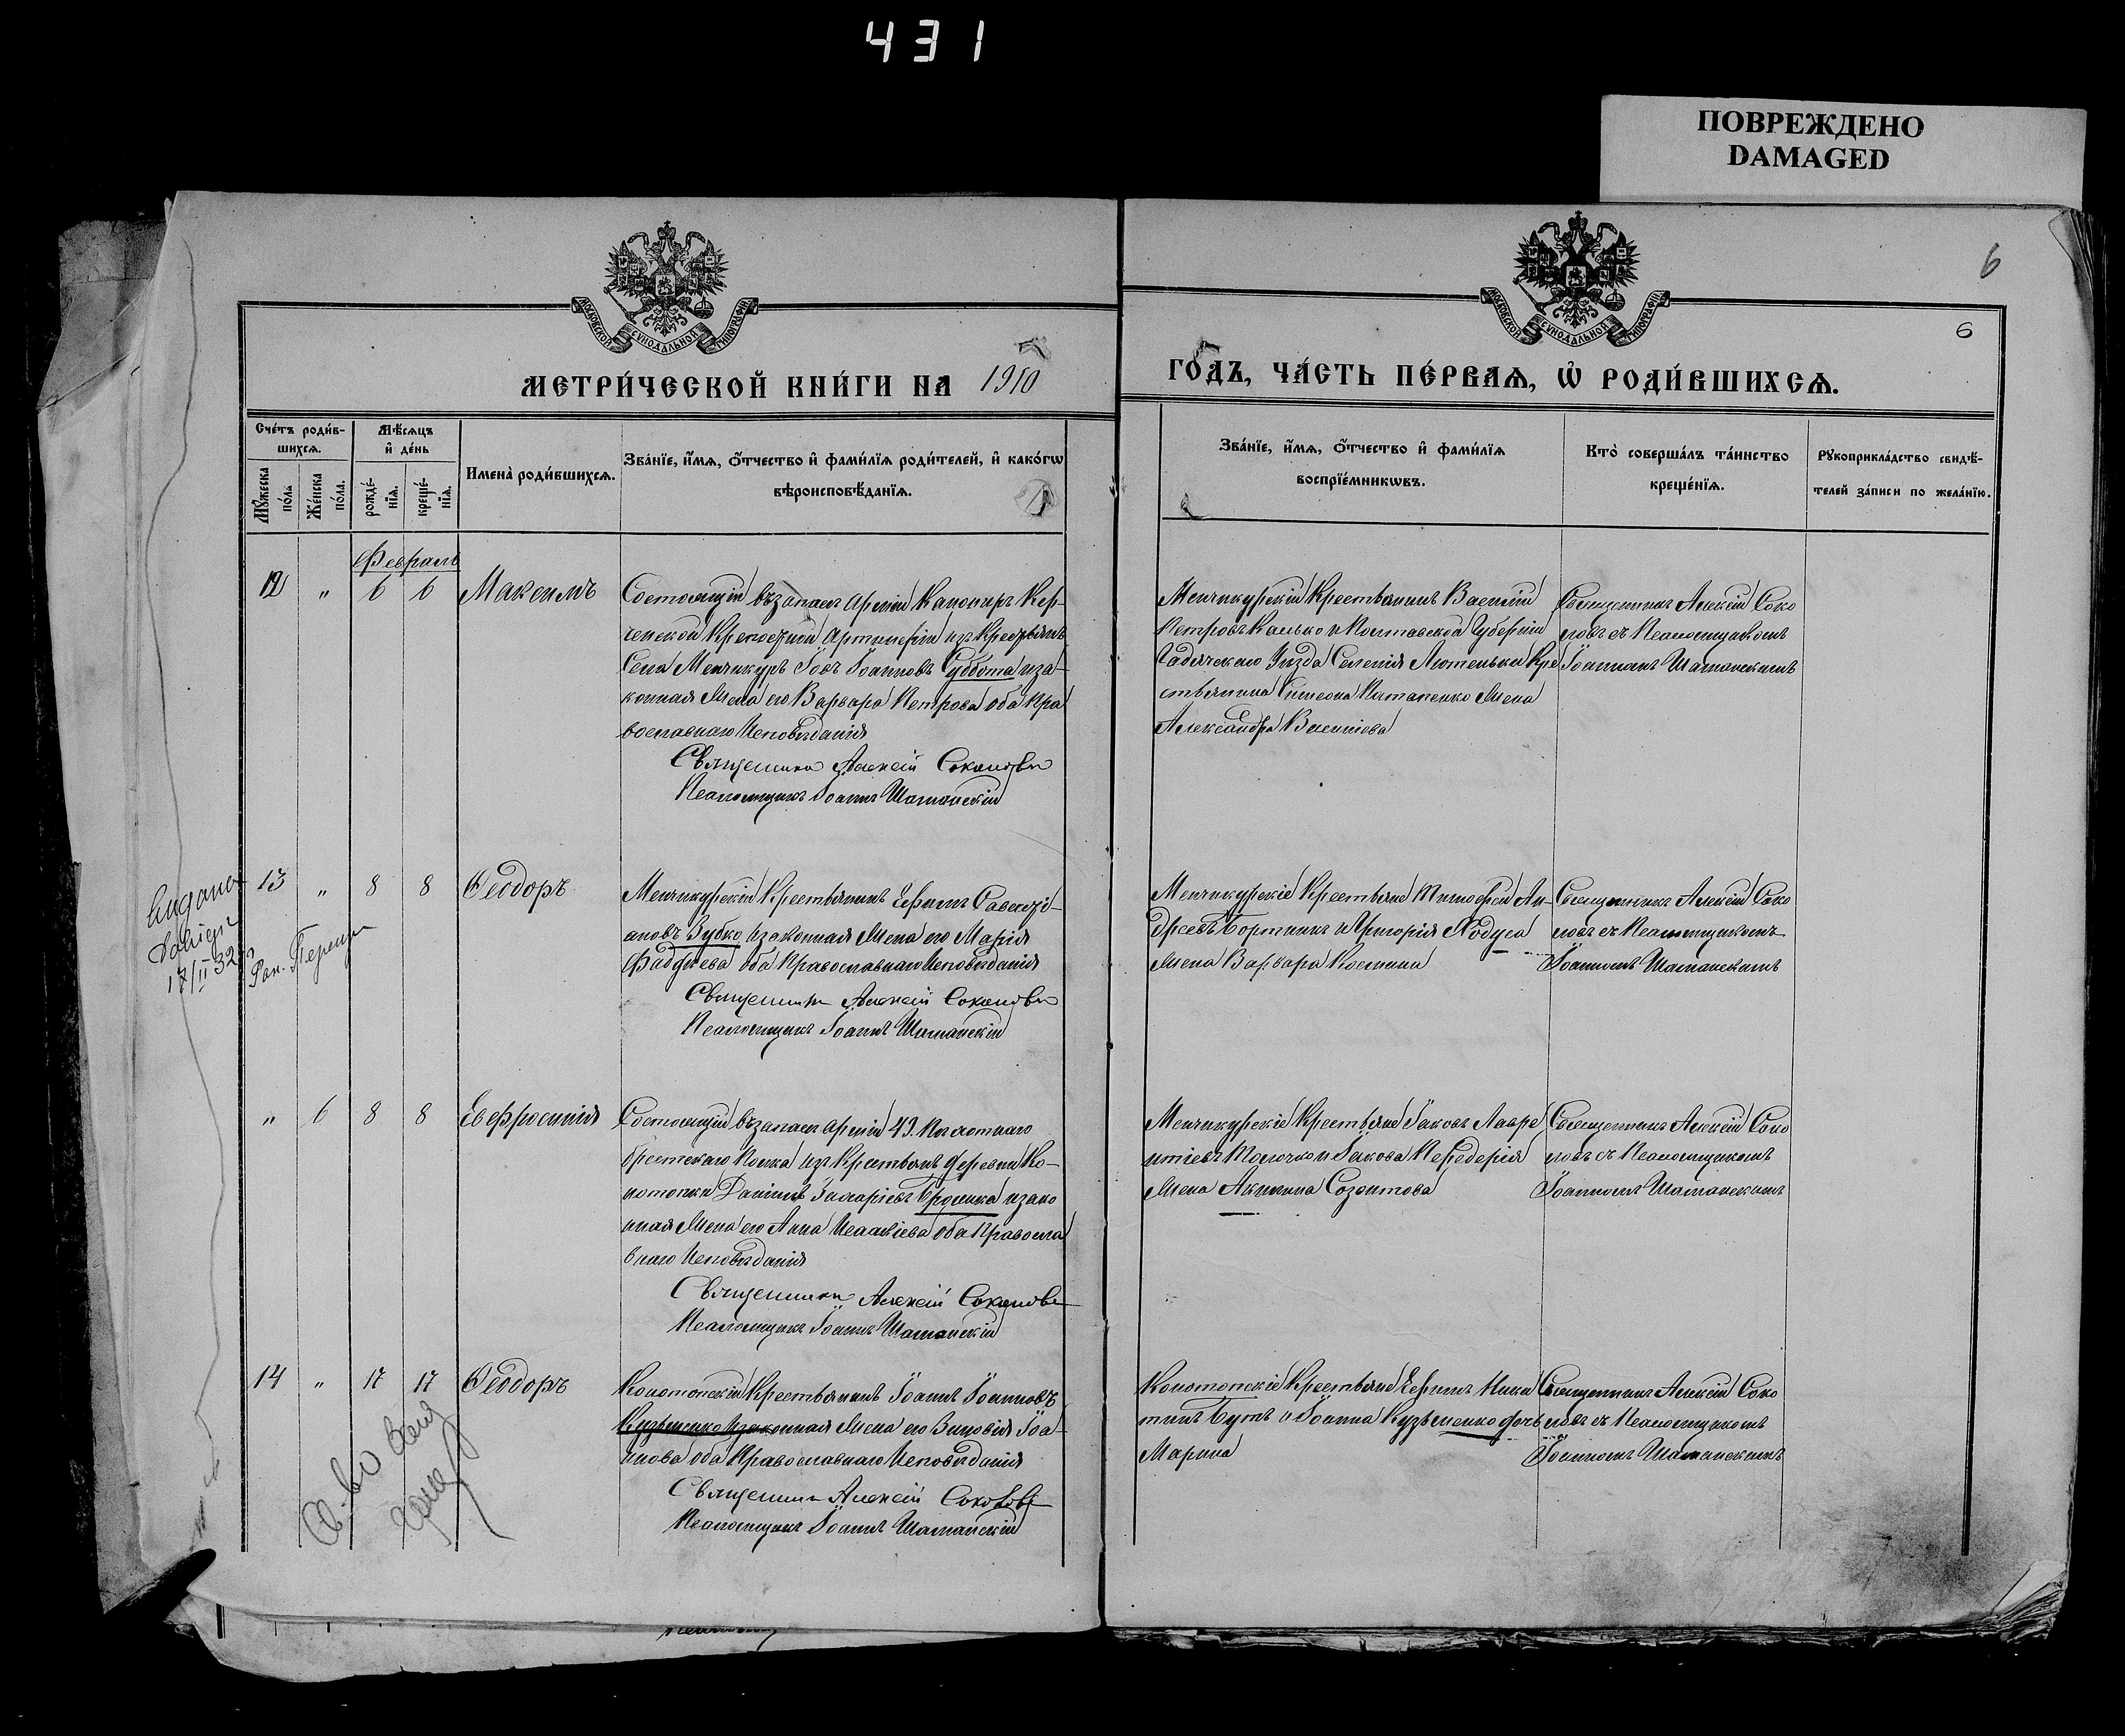 431
ПОВРЕЖДЕНО
DAMAGED
6
6
МОСКОВСКОЙ СѴНОДАЛЬНОЙ ТИПОГРАФІИ
МОСКОВСКОЙ СѴНОДАЛЬНОЙ ТИПОГРАФІИ
МЕТРИ́ЧЕСКОЙ КНИ́ГИ НА 1910
ГО́ДЪ, ЧА́СТЬ ПЕ́РВАѦ, Ѡ҆ РОДИ́ВШИХСѦ.
Сче́тъ роди́в-
шихсѧ.
Мꙋ́жеска
по́ла
Же́нска
по́ла.
Мѣ́сѧцъ
и҆ де́нь
рожде́-
нїѧ.
креще́-
нїѧ.
Имена̀ роди́вшихсѧ.
Зва́нїе, и҆́мѧ, ѻ҆́тчество и҆ фами́лїѧ роди́телей, и҆ како́гѡ
вѣроисповѣ́данїѧ.
Зва́нїе, и҆́мѧ, ѻ҆́тчество и҆ фами́лїѧ
воспрїе́мникѡвъ.
Кто̀ соверша́лъ та́инство
креще́нїѧ.
Рꙋкоприкла́дство свидѣ́-
телей за́писи по жела́нїю.
Февраль
12 " 6 6 Максимъ
Состоящій въ запасѣ арміи Канониръ Кер-
ченской Крепостной Артилеріи изъ Крестьянъ
Села Менчикуръ Іовъ Іоанновъ Суббота и за-
конная жена его Варвара Петрова оба Пра
вославнаго Исповѣданія
Священникъ Алексій Соколовъ
Псаломщикъ Іоаннъ Шаманскій
Менчикурскій Крестьянинъ Василій
Петровъ Калько и Полтавской Губерніи
Гадячскаго Уѣзда Селенія Лютеньки Кре
стьянина Симеона Потапенко жена
Александра Васильева
Священникъ Алексій Соко
ловъ съ Псаломщикомъ
Іоанномъ Шаманскимъ
13 " 8 8 Ѳеодоръ
Менчикурскій Крестьянинъ Ефимъ Савасті-
ановъ Зубко и законная жена его Марія
Фадѣева оба Православнаго Исповѣданія
Священникъ Алексій Соколовъ
Псаломщикъ Іоаннъ Шаманскій
Менчикурскіе Крестьяне Тимофей Ан-
дреевъ Бортникъ и Григорія Ходуса
жена Варвара Космина
Священникъ Алексій Соко
ловъ съ Псаломщикомъ
Іоанномъ Шаманскимъ
17/II 32
" 6 8 8 Евфросинія
Состоящій въ запасѣ арміи 49. Пѣхотнаго
Брестскаго Полка изъ Крестьянъ деревни Ко-
нотопки Даніилъ Іларіевъ Бролика и зако
нная жена его Анна Исаакіева оба Правосла
внаго Исповѣданія
Священникъ Алексій Соколовъ
Псаломщикъ Іоаннъ Шаманскій
Менчикурскіе Крестьяне Іаковъ Лавре
нтіевъ Толочко и Іакова Передерія
жена Акилина Созонтова
Священникъ Алексій Соко
ловъ съ Псаломщикомъ
Іоанномъ Шаманскимъ
14 " 17 17 Ѳеодоръ
Конотопскій Крестьянинъ Іоаннъ Іоанновъ
Кузьменко и законная жена его Зиновія Іоа-
ннова оба Православнаго Исповѣданія
Священникъ Алексій Соколовъ
Псаломщикъ Іоаннъ Шаманскій
Конотопскіе Крестьяне Ефимъ Ники
тинъ Бутъ и Іоанна Кузьменко дочь
Марина
Священникъ Алексій Соко
ловъ съ Псаломщикомъ
Іоанномъ Шаманскимъ